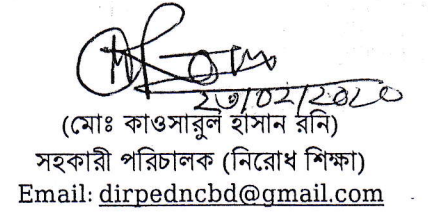 ২৩/০২/২০২০
(মোঃ কাওসারুল হাসান রনি)
সহকারী পরিচালক (নিরোধ শিক্ষা)
Email: dirpedncbd@gmail.com